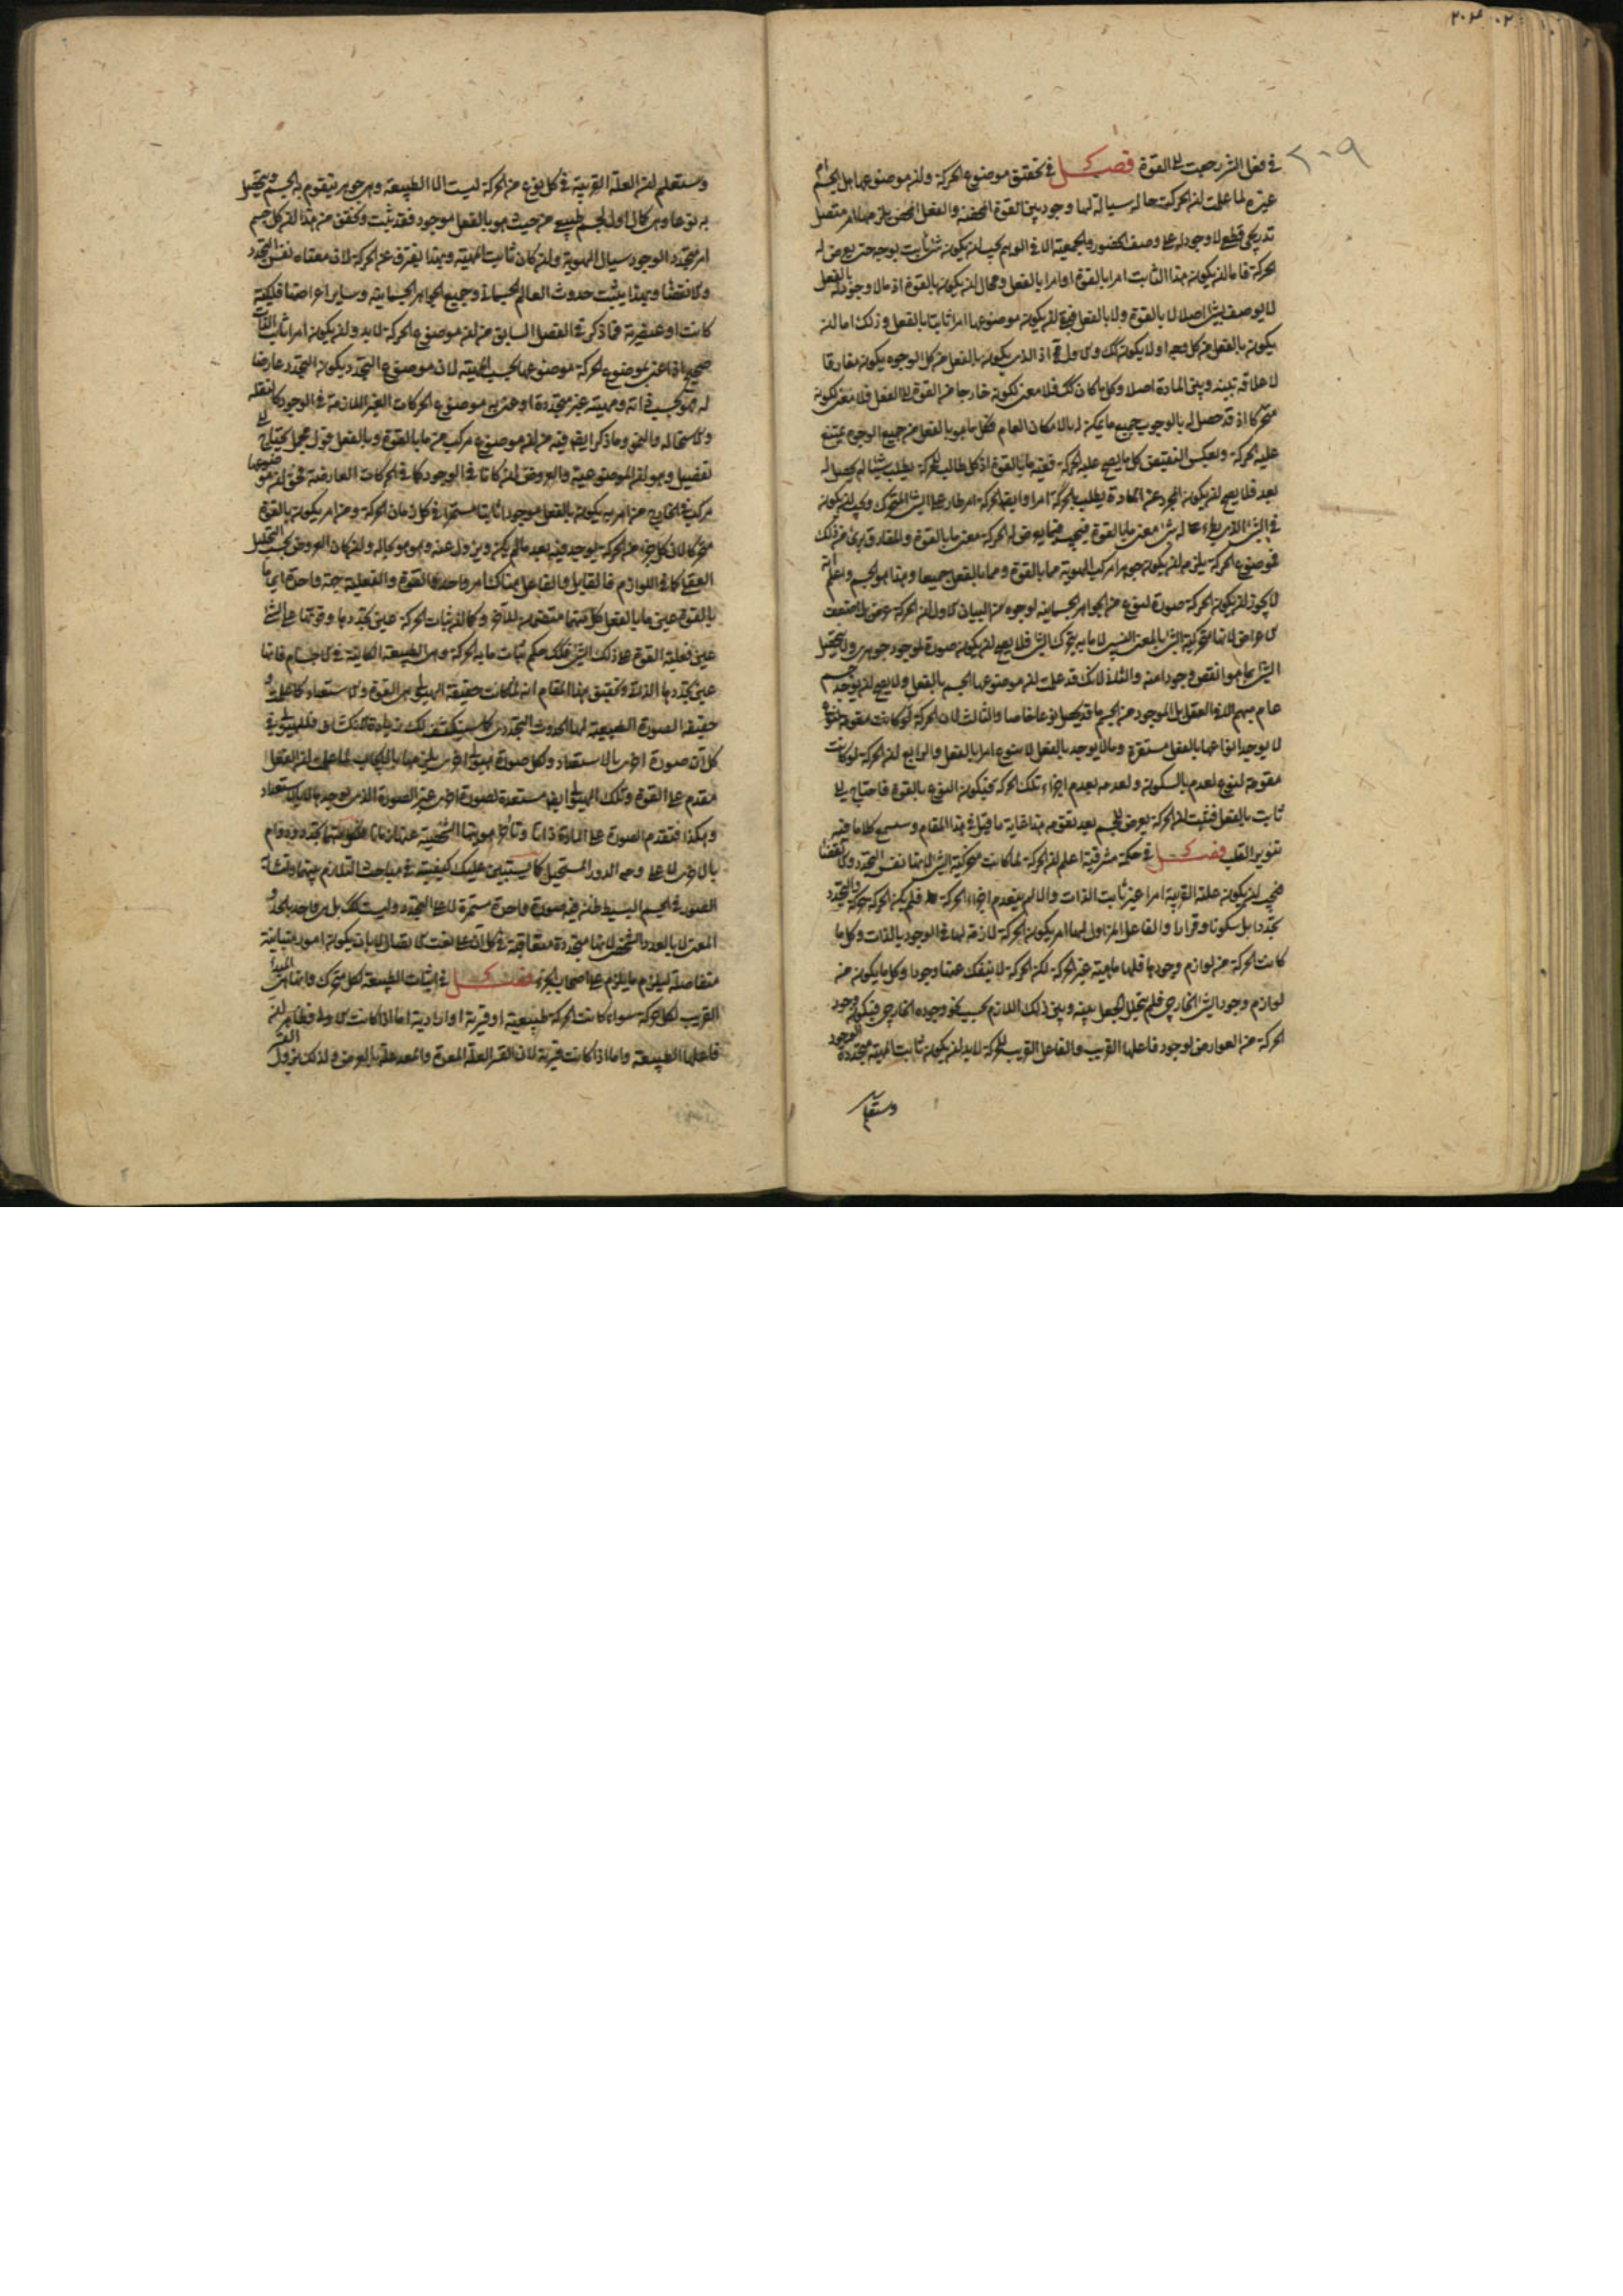 ٢٠٩
في فعل الشر رجعت الى القوة فصل في تحقيق موضوع الحركة وان موضوعها هل الجسم ام
غيره لما علمت ان الحركة حالة سيالة لها وجود بين القوة المحضة والفعل المحض يلزمها امر متصل
تدريجي قطعي لا وجود له على وصف الحضور والجمعية الا في الوهم يجب ان يكون شئ ثابت بوجه حتى يعرض له
الحركة فاما ان يكون هذا الثابت امرا بالقوة او امرا بالفعل ومحال ان يكون بالقوة اذ ما لا وجود له بالفعل
لا يوصف بشئ اصلا لا بالقوة ولا بالفعل فبقي ان يكون موضوعها امرا ثابتا بالفعل وذلك اما ان
يكون بالفعل من كل وجه او لا يكون كك والاول مح اذ الذي يكون بالفعل من كل الوجوه يكون مفارقا
لا علاقة بينه وبين المادة اصلا وكل ما كان كك فلا معنى لكونه خارجا من القوة الى الفعل فلا معنى لكونه
متحركا اذ قد حصل له بالوجوب جميع ما يمكن له بالامكان العام فكل ما هو بالفعل من جميع الوجوه يمتنع
عليه الحركة وبعكس النقيض كل ما يصح عليه الحركة ففيه ما بالقوة اذ كل طالب للحركة يطلب شيئا لم يحصل له
بعد فلا يصح ان يكون المجرد عن المادة يطلب بالحركة امرا وايضا الحركة امر طار على الشئ المتحرك ويجب ان يكون
في الشئ الذي يطرء عليه شئ معنى ما بالقوة فيجب فيما يعرض له الحركة معنى ما بالقوة والمفارق برئ من ذلك
فموضوع الحركة يلزم ان يكون جوهرا مركب الهوية مما بالقوة ومما بالفعل جميعا وهذا هو الجسم واعلم انه
لا يجوز ان يكون الحركة صورة لنوع من الجواهر الجسمانية لوجوه من البيان الاول ان الحركة عرض بل اضعف
الاعراض لانها متحركية الشئ بالمعنى النسبي لا ما به يتحرك الشئ فلا يصح ان يكون صورة لموجود جوهري ولا يتحصل
الشئ بما هو انقص وجودا منه والثاني لانك قد علمت ان موضوعها الجسم بالفعل ولا يصح ان يوجد جسم
عام مبهم الا في العقل بل الموجود من الجسم ما قد تحصل نوعا خاصا والثالث لان الحركة لو كانت مقومة لنوع
لا يوجد انواعها بالفعل مستقرة وما لا يوجد بالفعل لا ينوع امرا بالفعل والرابع ان الحركة لو كانت
مقومة لنوع لعدم بالسكون ولعدمه بعدم اجزاء تلك الحركة فيكون النوع بالقوة فاحتاج الى
ثابت بالفعل فثبت ان الحركة يعرض للجسم بعد تقومه هذا غاية ما قيل في هذا المقام وستسمع كلاما فيه
تنوير القلب فصل في حكمة مشرقية اعلم ان الحركة لما كانت متحركية الشئ لانها نفس التجدد والانقضاء
فيجب ان يكون علته القريبة امرا غير ثابت الذات والا لم ينعدم اجزاء الحركة فلم يكن الحركة حركة والتجدد
تجددا بل سكونا وقرارا والفاعل المزاول لها امر يكون الحركة لازمة لها في الوجود بالذات وكل ما
كانت الحركة من لوازم وجودها فلها ماهية غير الحركة لكن الحركة لا ينفك عنها وجودا وكل ما يكون من
لوازم وجود الشئ الخارجي فلم يتخلل الجعل بينه وبين ذلك اللازم بحسب نحو وجوده الخارجي فيكون وجود
الحركة من العوارض لوجود فاعلها القريب والفاعل القريب للحركة لا بد ان يكون ثابت المهية متجددة الوجود
وستعلم
وستعلم ان العلة القريبة في كل نوع من الحركة ليست الا الطبيعة وهي جوهر يتقوم به الجسم ويتحصل
به نوعا وهي كمال اول لجسم طبيعي من حيث هو بالفعل موجود فقد ثبت وتحقق من هذا ان كل جسم
امر متجدد الوجود سيال الهوية وان كان ثابت المهية وبهذا يفترق عن الحركة لان معناه نفس التجدد
والانقضاء وبهذا يثبت حدوث العالم الجسماني وجميع الجواهر الجسمانية وساير اعراضها فلكية
كانت او عنصرية فما ذكر في الفصل السابق من ان موضوع الحركة لا بد وان يكون امرا ثابت الذات
صحيح اذا عنى بموضوع الحركة موضوعها بحسب المهية لان موضوع التجدد يكون التجدد عارضا
له فهو بحسب ذاته ومهيته غير متجددة او عنى به موضوع الحركات الغير اللازمة في الوجود كالنقلة
والاستحالة والنمو وما ذكر ايضا فيه من ان موضوع مركب من ما بالقوة وبالفعل قول مجمل يحتاج الى
تفصيل وهو ان الموضوعية والعروض ان كانا في الوجود كما في الحركات العارضة فحق ان موضوعها
مركب في الخارج من امر به يكون بالفعل موجودا ثابتا مستمرا في كل زمان الحركة ومن امر يكون بالقوة
متحركا لان كل جزء من الحركة يوجد فيه بعد ما لم يكن ويزول عنه وهو هو بحاله وان كان العروض بحسب التحليل
العقلي كما في اللوازم فالقابل والفاعل هناك امر واحد والقوة والفعلية جهة واحدة اي ما
بالقوة عين ما بالفعل كل منهما متضمن للاخر وكما ان ثبات الحركة عين تجددها وقوتها على الشئ
عين فعلية القوة على ذلك الشئ فكك حكم ثبات ما به الحركة وهي الطبيعة الكائنة في الاجسام فانها
عين تجددها الذاتي وتحقيق هذا المقام انه لما كانت حقيقة الهيولى هي القوة والاستعداد كما علمت و
حقيقة الصورة الطبيعية لها الحدوث التجددي كما سينكشف لك زيادة الانكشاف فللهيولى في
كل آن صورة اخرى بالاستعداد ولكل صورة هيولى اخرى يلزمها بالايجاب لما علمت ان الفعل
مقدم على القوة وتلك الهيولى ايضا مستعدة لصورة اخرى غير الصورة التي توجبها لا بالاستعداد
وهكذا فتقدم الصورة على المادة ذاتا وتأخر هويتها الشخصية عنها زمانا فلكل منهما تجدد ودوام
بالاخرى لا على وجه الدور المستحيل كما يستبين عليك كيفيته في مباحث التلازم بينهما ولتشابه
الصور في الجسم البسيط ظن فيه صورة واحدة مستمرة لا على التجدد وليست كك بل هي واحدة بالحد و
المعنى لا بالعدد الشخصي لانها متجددة متعاقبة في كل آن على نعت الاتصال لا بان يكون امورا متباينة
متفاصلة ليلزم ما يلزم على اصحاب الجزء فصل في اثبات الطبيعة لكل متحرك وانها هي المبدأ
القريب لكل حركة سواء كانت الحركة طبيعية او قسرية او ارادية اما اذا كانت الاولى فظاهر ان
فاعلها الطبيعة واما اذا كانت قسرية لان القسر العلة المعدة والمعد علة بالعرض ولذلك يزول القسر